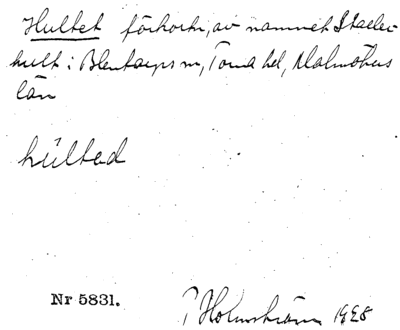 Hultet förkortn. av namnet Stade-
hult i Blentarps sn, Torna hd, Malmöhus
län
húltəd
Nr 5831. P Holmström 1928